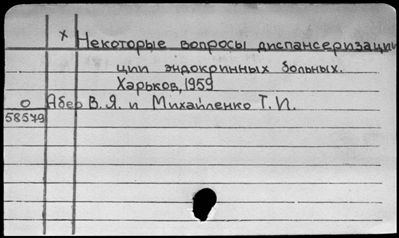 x Некоторые вопросы диспансеризации
ции эндокринных больных.
Харьков, 1959
О Абер В.Я. и Михайленко Т.И.
58579